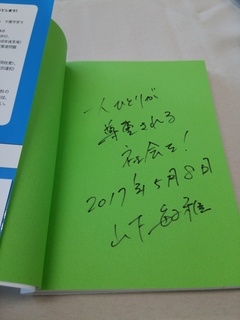 一人ひとりが
尊重される
社会を!
2017年5月8日
山下敏雅